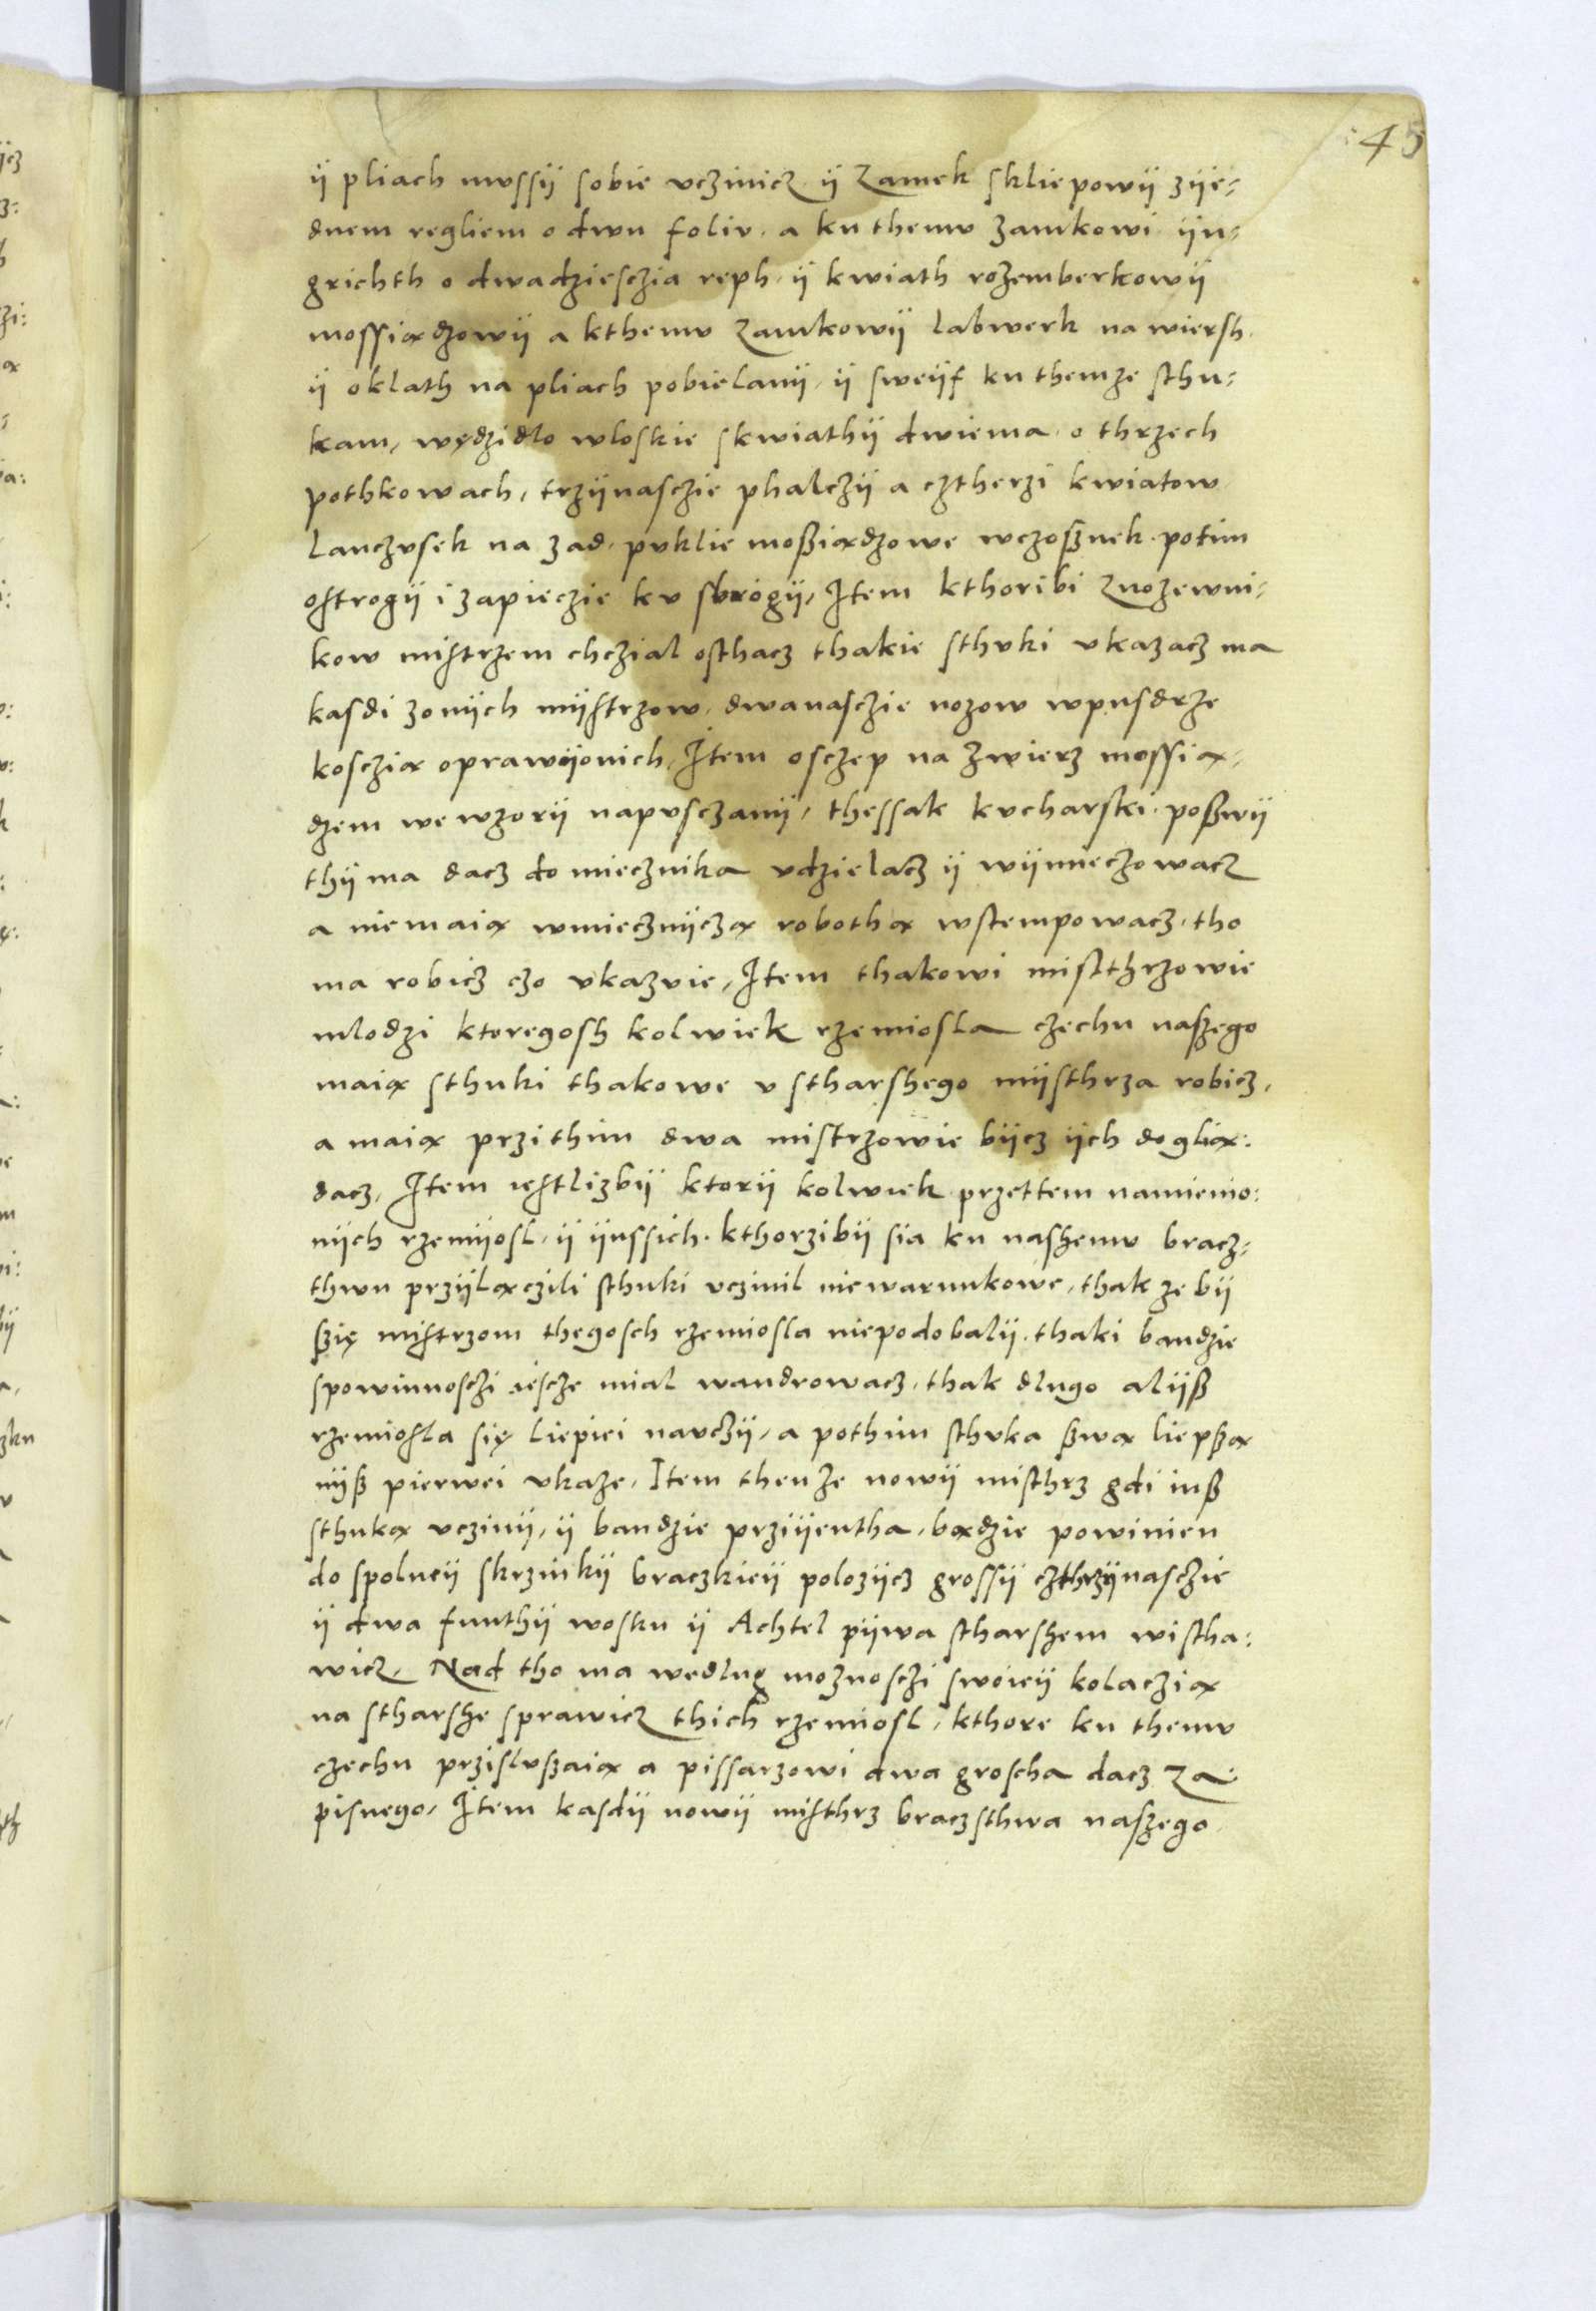 45
ÿ pliach mussÿ sobie vczinicz ÿ Zamek skliepowÿ zÿe-
dnem regliem o dwu foliv. a ku themv zamkowi ÿn-
grichth o dwadziesczia reph. ÿ kwiath rozemberkowÿ
mossiądzowÿ a kthemv Zamkowÿ labwerk na wiersh.
ÿ oklath na pliach pobielanÿ, ÿ sweÿf ku themze sthu-
kam, wędzidlo wloskie skwiathÿ dwiema. o thrzech
pothkowach, trzÿnasczie phalczÿ a cztherzi kwiatow
Lanczvsek na zad. puklie moßiądzowe wczoßnek. potim
ostrogÿ i zapieczie kv sbrogÿ, Item kthoribi Znozewni-
kow mistrzem chczial osthacz thakie sthvki vkazacz ma
kasdi zonÿch mÿstrzow. dwanasczie nozow wpusdrze
kosczią oprawÿonich, Item osczep na zwierz mossią-
dzem we wzorÿ napvsczanÿ, thessak kvcharski. poßwÿ
thÿ ma dacz do miecznika vdzielacz ÿ wÿmieczowacz
a niemaią wmiecznÿczą robothą wstempowacz. tho
ma robicz czo vkazvie, Item thakowi misthrzowie
mlodzi ktoregosh kolwiek rzemiosla czechu naszego
maią sthuki thakowe v stharshego mÿsthrza robicz,
a maią przithim dwa mistrzowie bÿcz ÿch doglią:
dacz, Item iestlizbÿ ktorÿ kolwiek przettem namienio:
nÿch rzemÿosl, ÿ ÿnssich. kthorzibÿ sia ku nashemv bracz-
thwu przÿlączili sthuki vczinil niewarunkowe, thak ze bÿ
szię mistrzom thegosch rzemiosla niepodobalÿ. thaki bandzie
spowinnosczi iescze mial wandrowacz, thak dlugo alÿß
rzemiosla się liepiei nauczÿ, a pothim sthvka ßwą liepßą
nÿß pierwei vkaze, Item thenze nowÿ misthrz gdi iuß
sthuką vczinÿ, ÿ bandzie przÿÿentha, bądzie powinien
do spolneÿ skrzinkÿ braczkieÿ polozÿcz grossÿ czthrzÿnasczie
ÿ dwa funthÿ wosku ÿ Achtel pÿwa stharshem wistha:
wicz, Nad tho ma wedlug moznosczi swoieÿ kolaczią
na stharshe sprawicz thich rzemiosl, kthore ku themv
czechu przislvßaią a pissarzowi dwa groscha dacz Za
pisnego, Item kasdÿ nowÿ misthrz braczsthwa naszego